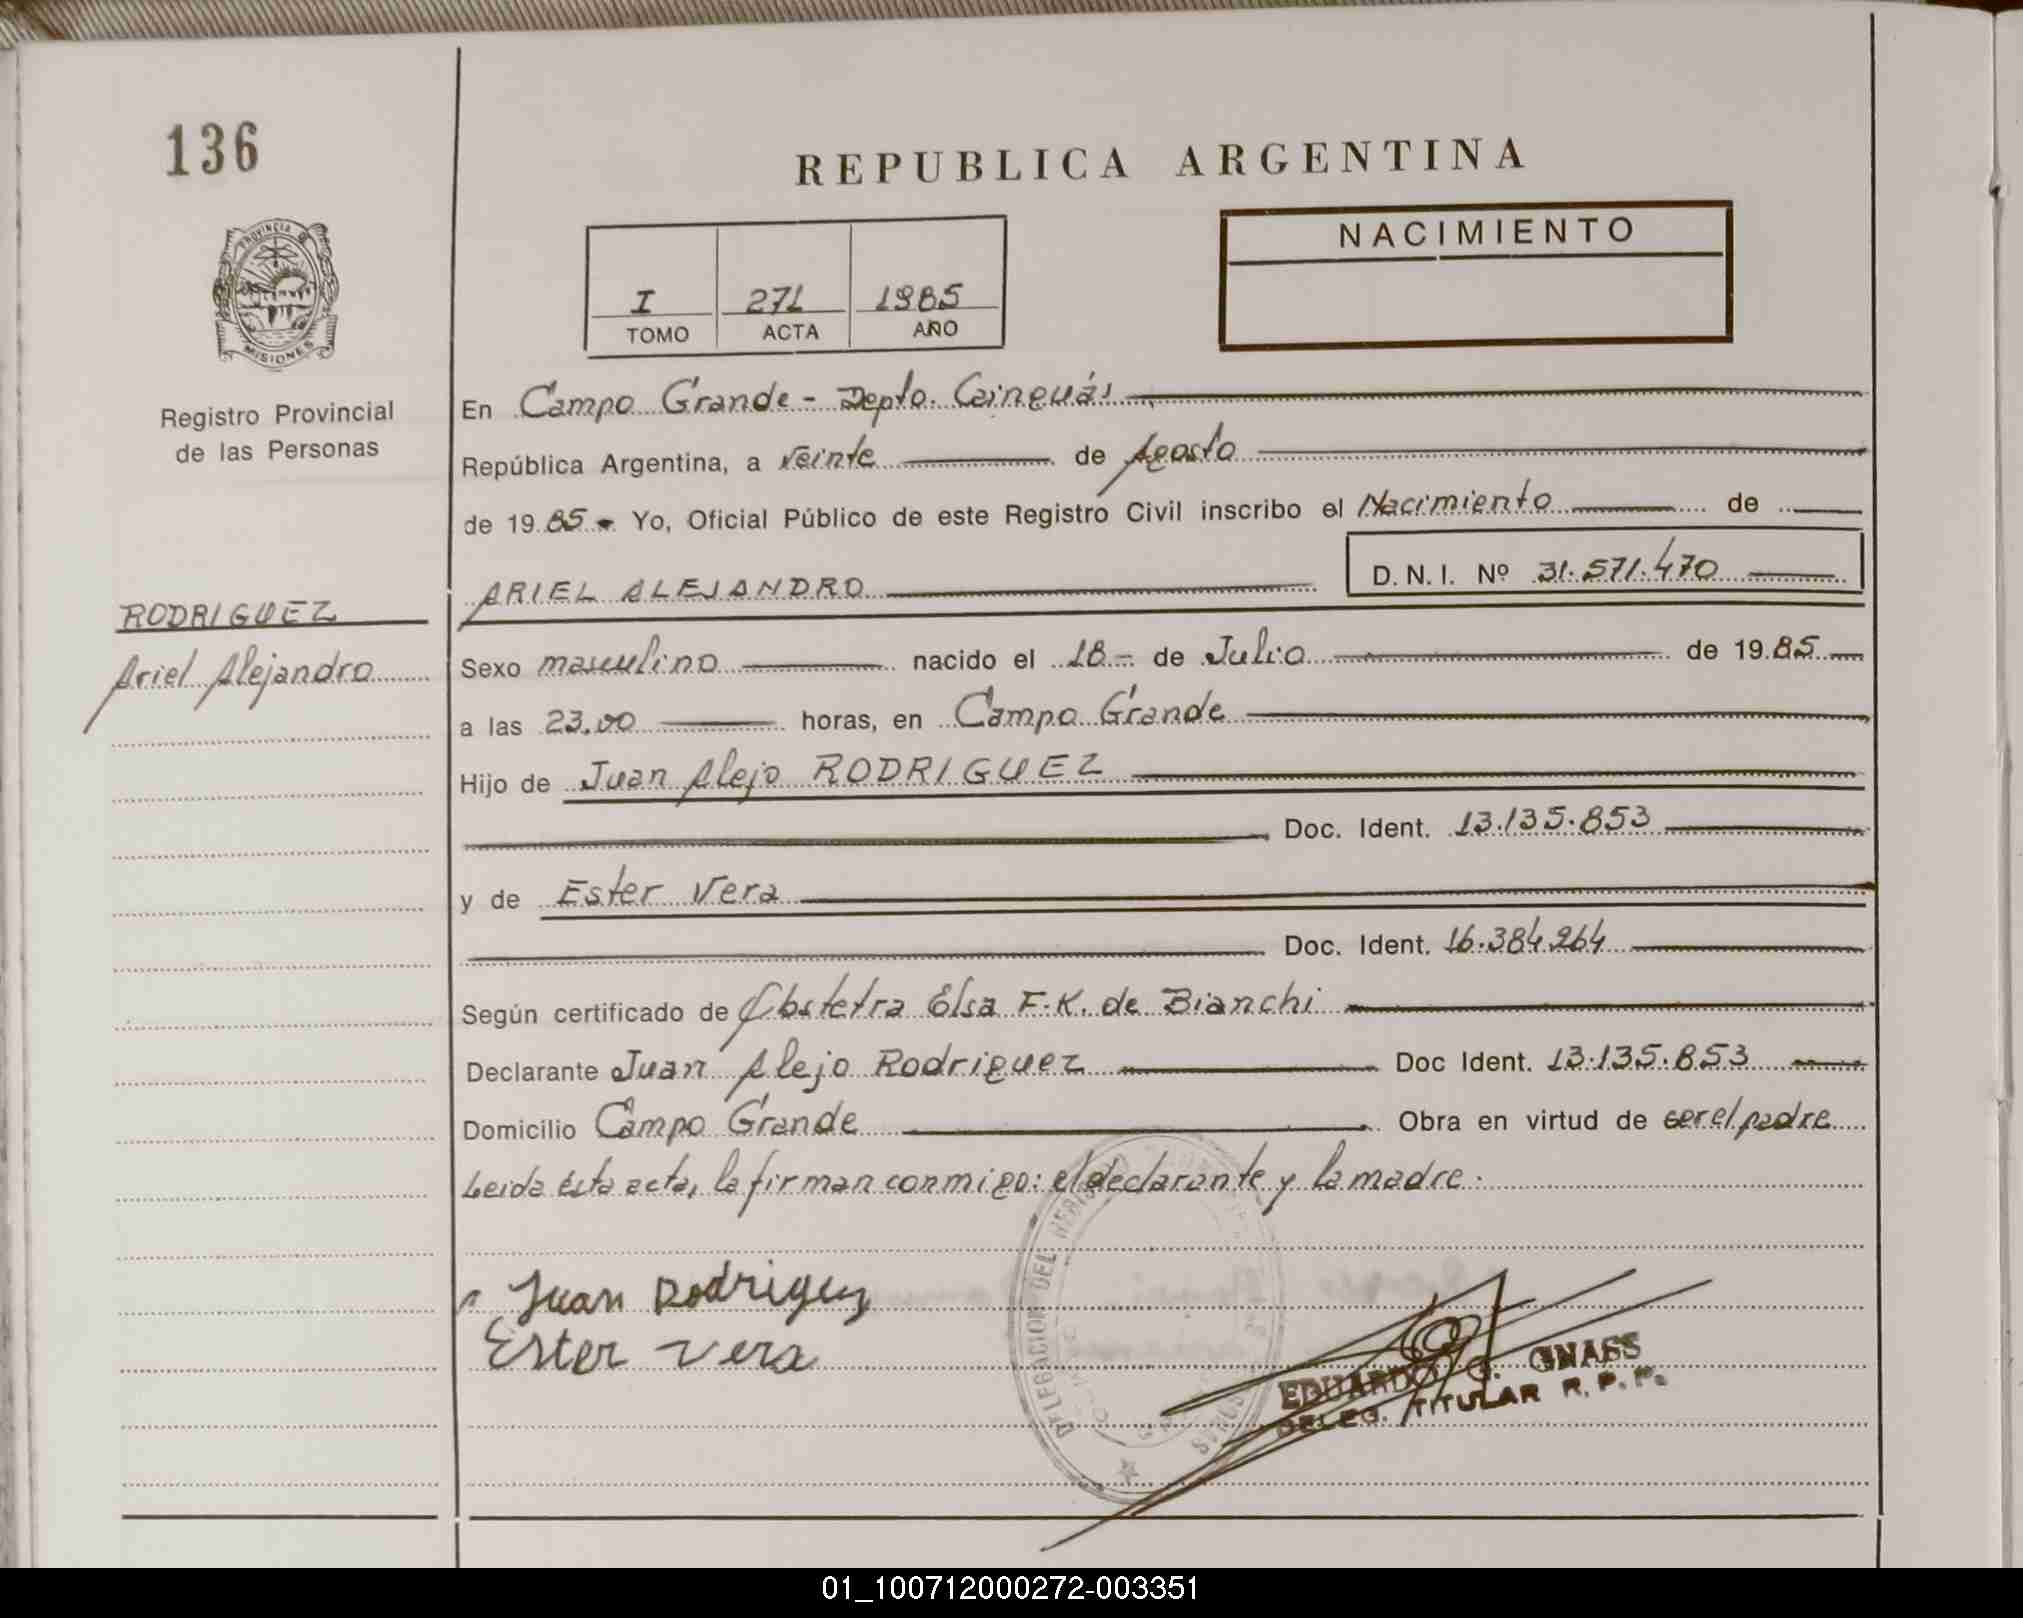 136
REPUBLICA ARGENTINA
NACIMIENTO
PROVINCIA DE
MISIONES
I 271 1985
TOMO ACTA AÑO
Registro Provincial
de las Personas
En Campo Grande - Depto. Cainguás
República Argentina, a veinte de Agosto
de 19 85 - Yo, Oficial Público de este Registro Civil inscribo el Nacimiento de
ARIEL ALEJANDRO D.N.I. Nº 31.571.470
RODRIGUEZ
Ariel Alejandro
Sexo masculino nacido el 18 - de Julio de 19 85
a las 23.00 horas, en Campo Grande
Hijo de Juan Alejo RODRIGUEZ
Doc. Ident. 13.135.853
y de Ester Vera
Doc. Ident. 16.384.264
Según certificado de Obstetra Elsa F.K. de Bianchi
Declarante Juan Alejo Rodriguez Doc Ident. 13.135.853
Domicilio Campo Grande Obra en virtud de ser el padre
Leida ésta acta, la firman conmigo: el declarante y la madre.
DELEGACION DEL
Juan Rodriguez
Ester Vera
EDUARDO G. GNASS
DELEG. TITULAR R.P.P.
01_100712000272-003351